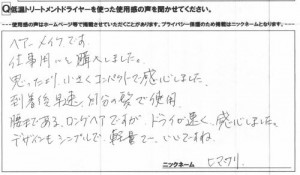 Q低温トリートメントドライヤーを使った使用感の声を聞かせてください。
使用感の声はホームページ等で掲載させていただくことがあります。プライバシー保護のため掲載はニックネームとなります。
ヘアーメイクです。
仕事用にと購入しました。
思ったより小さくコンパクトで感心しました。
到着後早速、自分の髪で使用。
腰まである、ロングヘアですが、ドライが速く、感心しました。
デザインもシンプルで、軽量で、いいですね
ニックネーム ヒマワリ